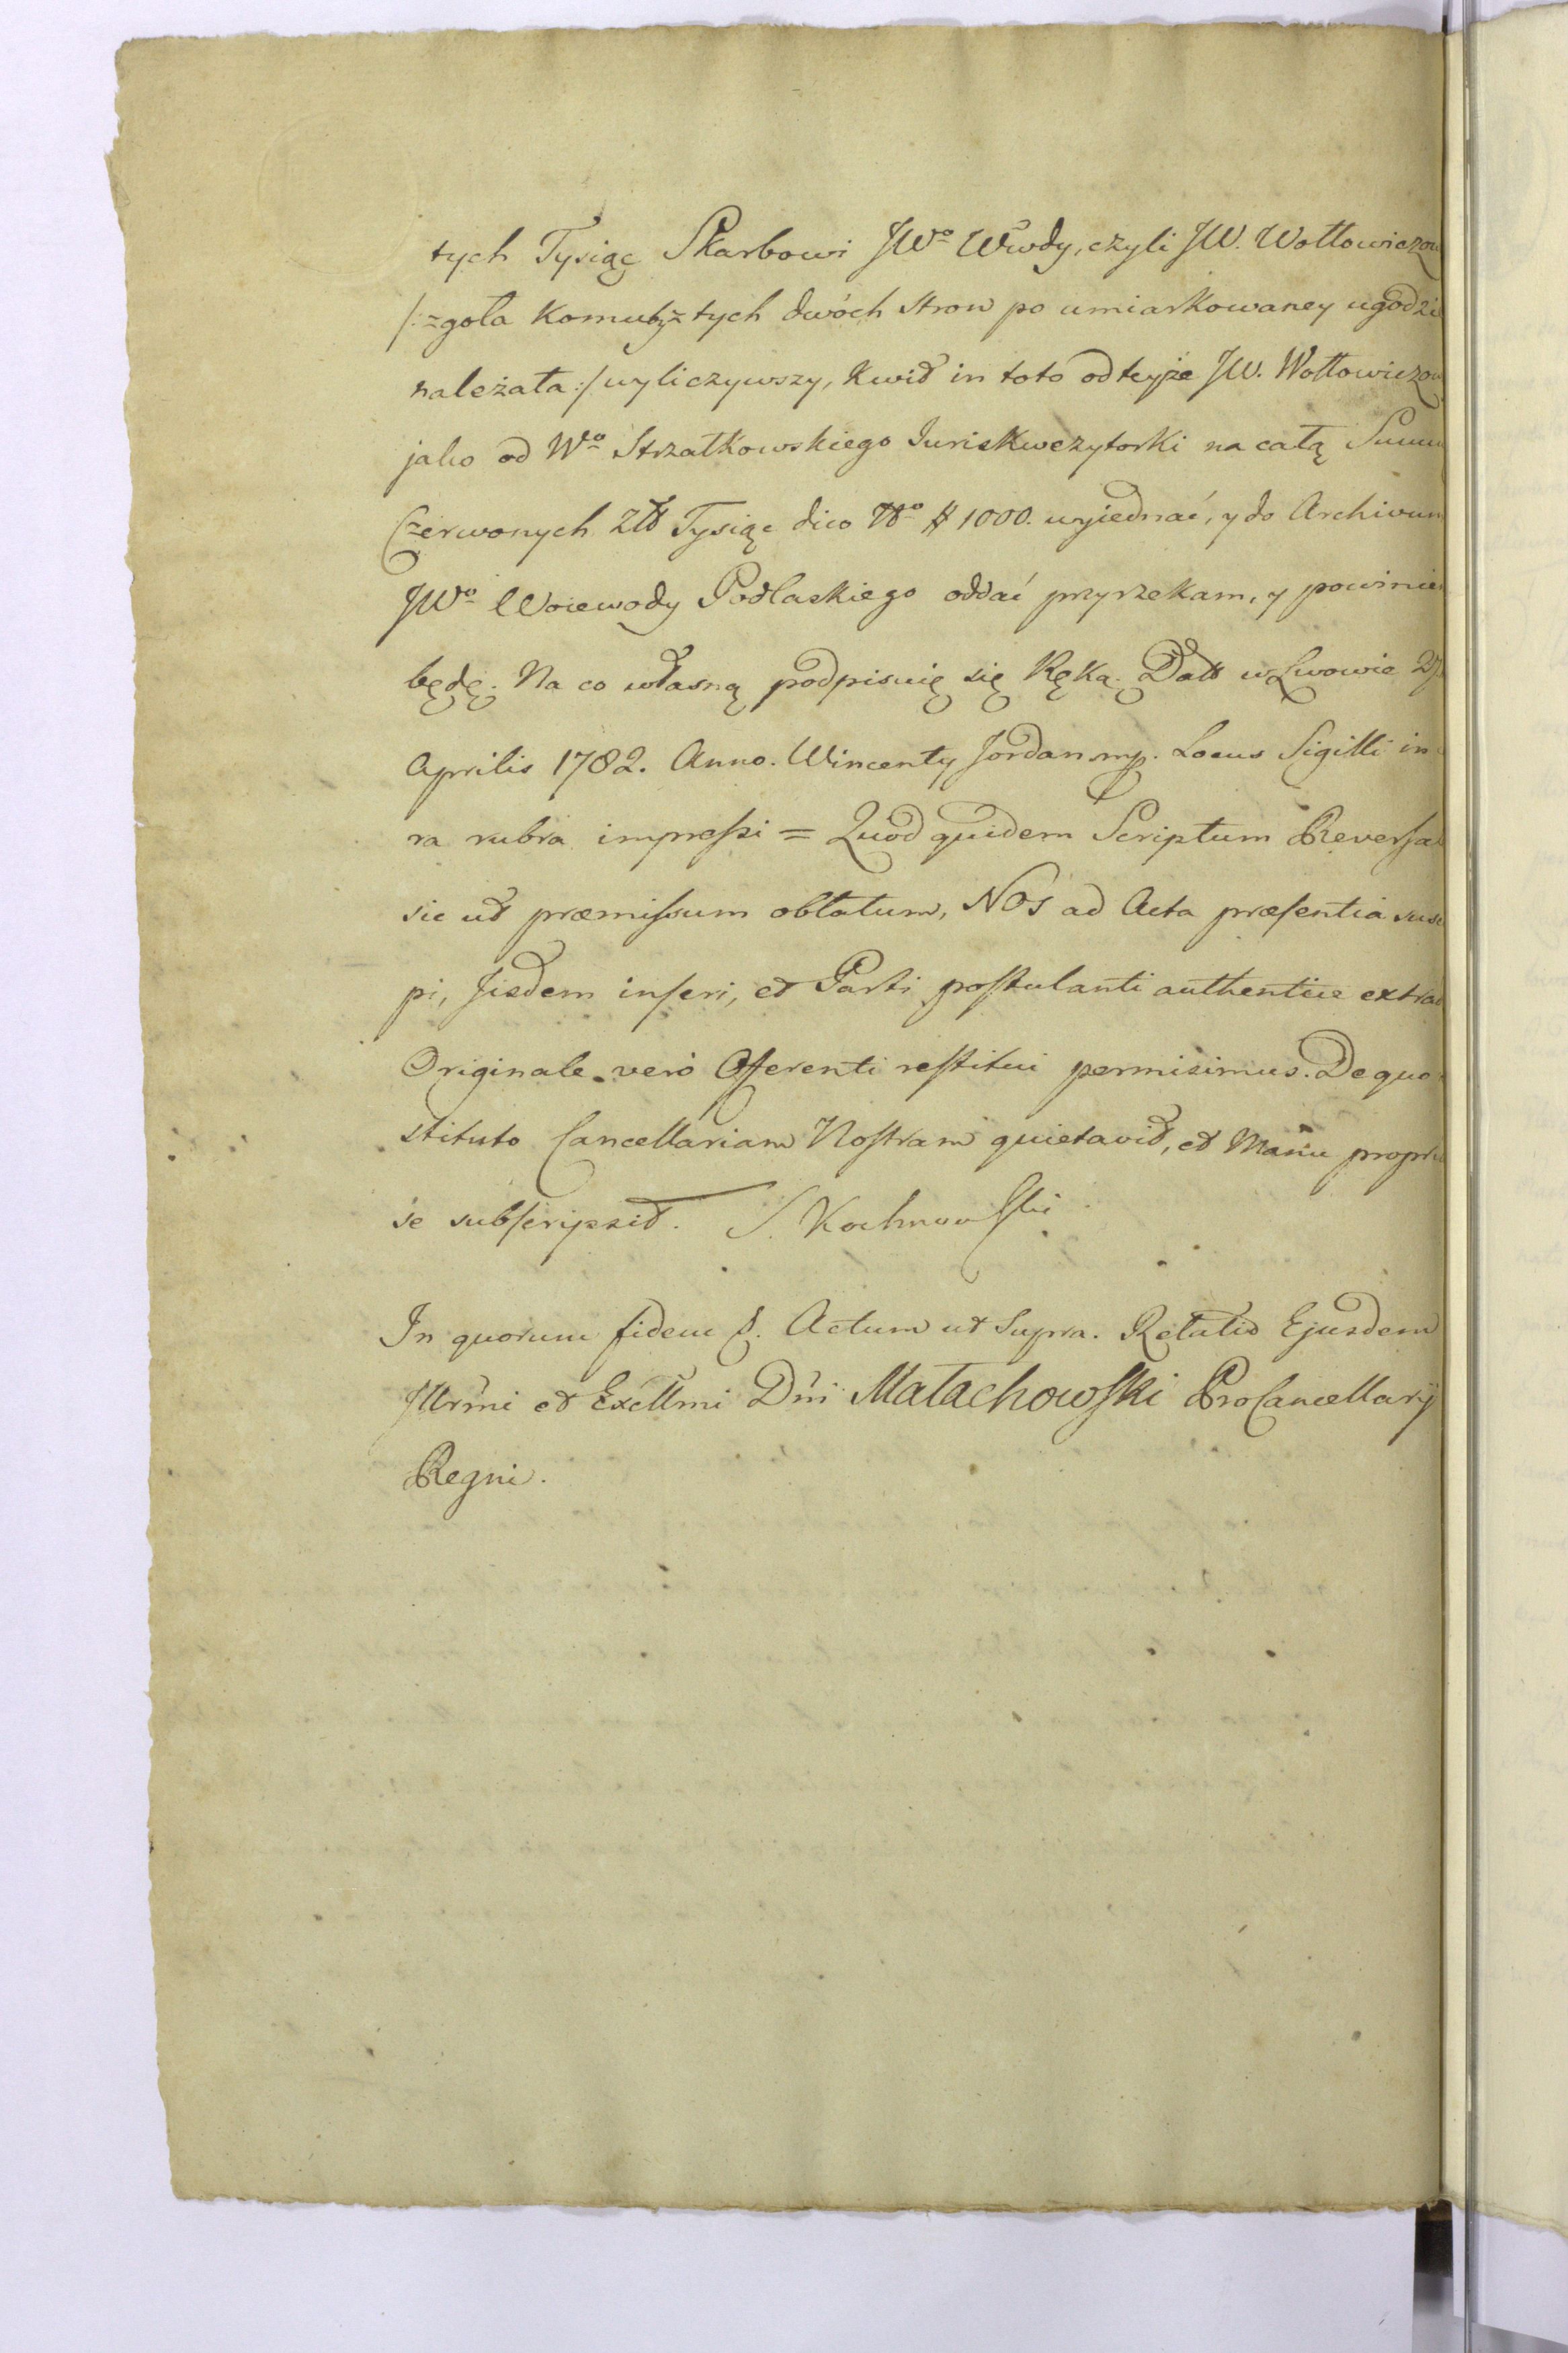 tych Tysiąc Skarbowi JWo Wwdy, czyli JW. Wołłowiczow
/:zgoła komuby z tych dwóch stron po umiarkowaney ugodzie
należała:/ wyliczywszy, Kwit in toto od teyże JW. Wołłowiczow
jako od Wo Strzałkowskiego Juriskwezytorki na całą Summ
Czerwonych Złt Tysiąc dico No # 1000. wyiednać, y do Archivum
JWo Woiewody Podlaskiego oddać przyrzekam, y powinie
będę. Na co własną podpisuię się Ręką. Datt w Lwowie 27
Aprilis 1782. Anno. Wincenty Jordan mp. Locus Sigilli in
ra rubra impressi = Quod quidem Scriptum Reversal
sic ut præmissum oblatum, NOS ad Acta præsentia susc
pi, Jisdem inseri, et Parti postulanti authentice extrad
Originale vero Offerenti restitui permisimus. De quo
stituto Cancellariam Nostram quietavit, et Manu propri
se subscripsit. S. Kochnowski
In quorum fidem S. Actum ut Supra. Relatio Ejusdem
Illrmi et Excllmi Dni Małachowski ProCancellarij
Regni.